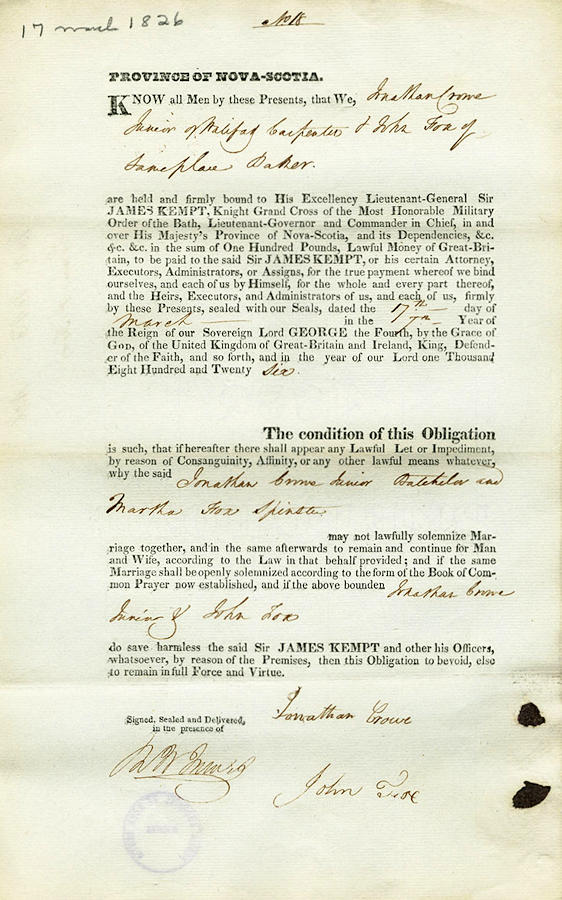 17 March 1826
No 18
PROVINCE OF NOVA-SCOTIA.
KNOW all Men by these Presents, that We, Jonathan Crowe
Junior of Halifax Carpenter & John Fox of
Same place Baker.
are held and firmly bound to His Excellency Lieutenant-General Sir
JAMES KEMPT, Knight Grand Cross of the Most Honorable Military
Order of the Bath, Lieutenant-Governor and Commander in Chief, in and
over His Majesty's Province of Nova-Scotia, and its Dependencies, &c.
&c. &c. in the sum of One Hundred Pounds, Lawful Money of Great-Bri-
tain, to be paid to the said Sir JAMES KEMPT, or his certain Attorney,
Executors, Administrators, or Assigns, for the true payment whereof we bind
ourselves, and each of us by Himself, for the whole and every part thereof,
and the Heirs, Executors, and Administrators of us, and each of us, firmly
by these Presents, sealed with our Seals, dated the 17th day of
March in the 7th Year of
the Reign of our Sovereign Lord GEORGE the Fourth, by the Grace of
GOD, of the United Kingdom of Great-Britain and Ireland, King, Defend-
er of the Faith, and so forth, and in the year of our Lord one Thousand
Eight Hundred and Twenty Six.
The condition of this Obligation
is such, that if hereafter there shall appear any Lawful Let or Impediment,
by reason of Consanguinity, Affinity, or any other lawful means whatever,
why the said Jonathan Crowe Junior Batchelor and
Martha Fox Spinster
may not lawfully solemnize Mar-
riage together, and in the same afterwards to remain and continue for Man
and Wife, according to the Law in that behalf provided; and if the same
Marriage shall be openly solemnized according to the form of the Book of Com-
mon Prayer now established, and if the above bounden Jonathan Crowe
Junior & John Fox
do save harmless the said Sir JAMES KEMPT and other his Officers,
whatsoever, by reason of the Premises, then this Obligation to be void, else
to remain in full Force and Virtue.
Signed, Sealed and Delivered,
in the presence of
Jonathan Crowe
John Fox